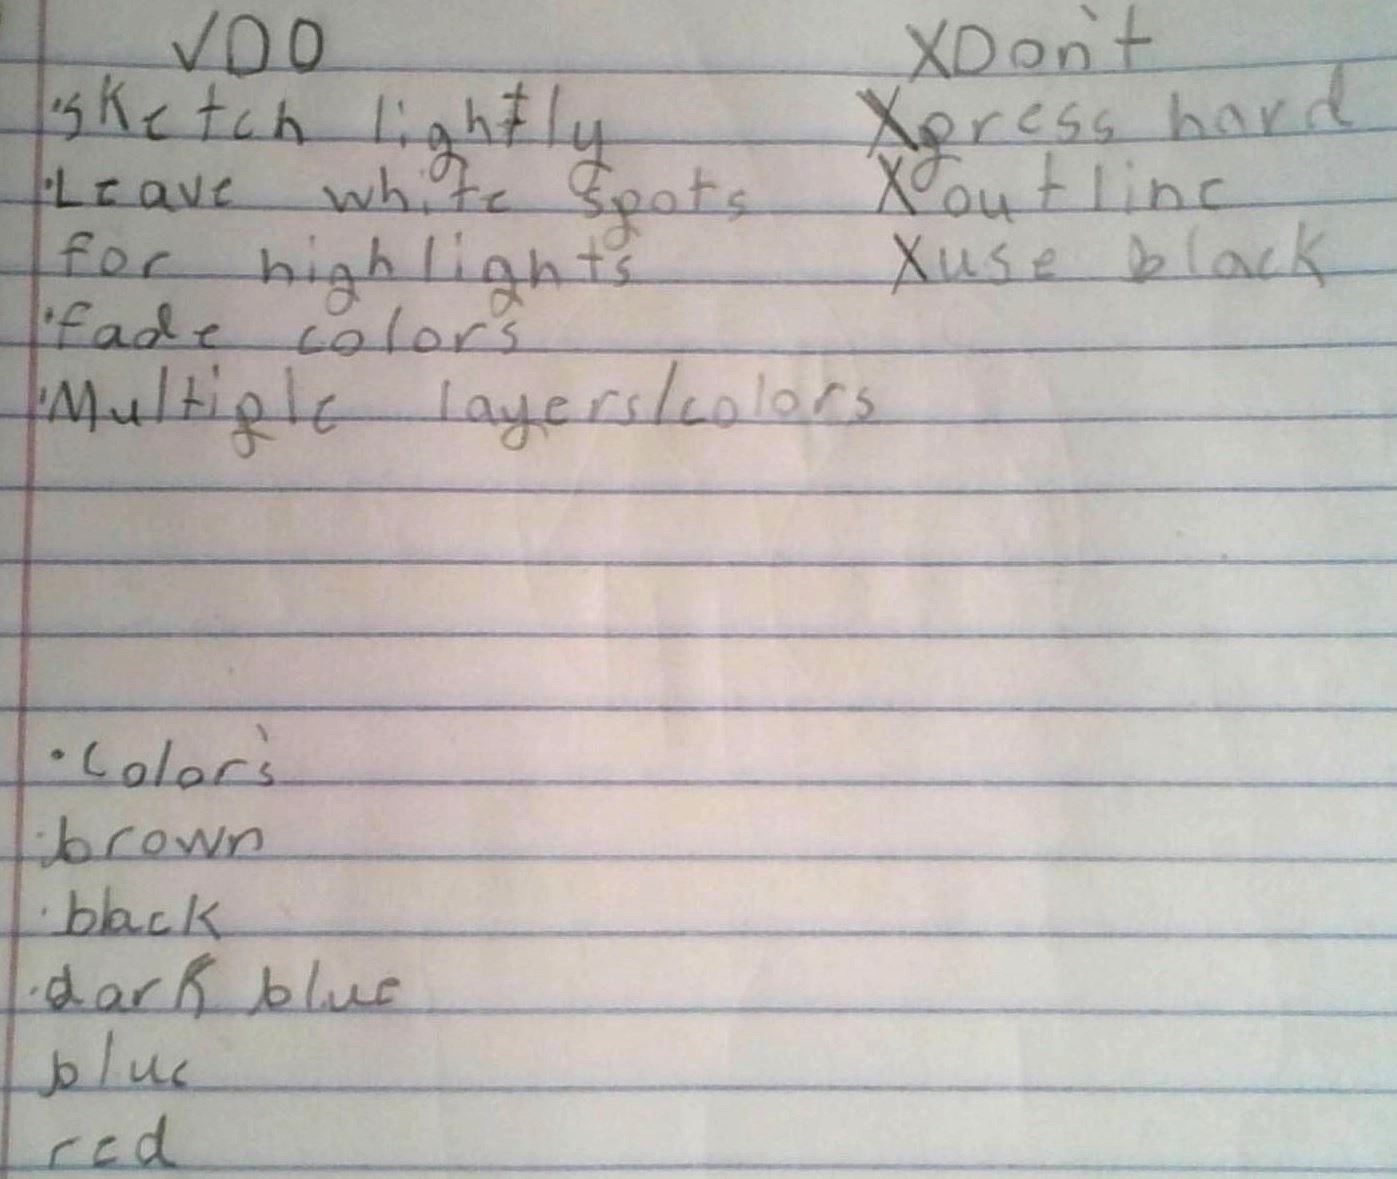 √DO
XDon't
·Sketch lightly
Xpress hard
·Leave white spots
Xoutline
for highlights
Xuse black
·fade colors
·Multiple layers/colors
·Color's
·brown
·black
·dark blue
blue
red